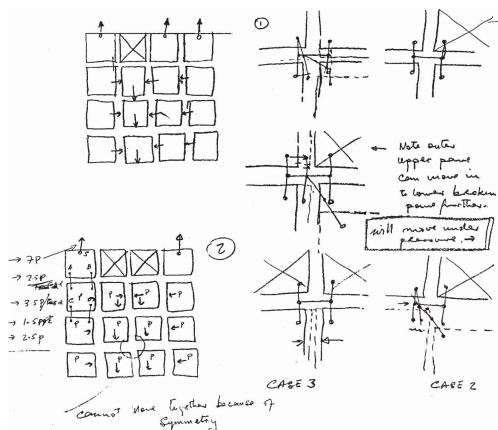 1
← Note outer
upper pane
can move in
to lower broken
pane further.
will move under
pressure. →
2
→ 7P
→ 2.5P
→ 2.5P
S
A B
C P
P P P
P P P P
P P P P
CASE 3
CASE 2
cannot move together because of
symmetry